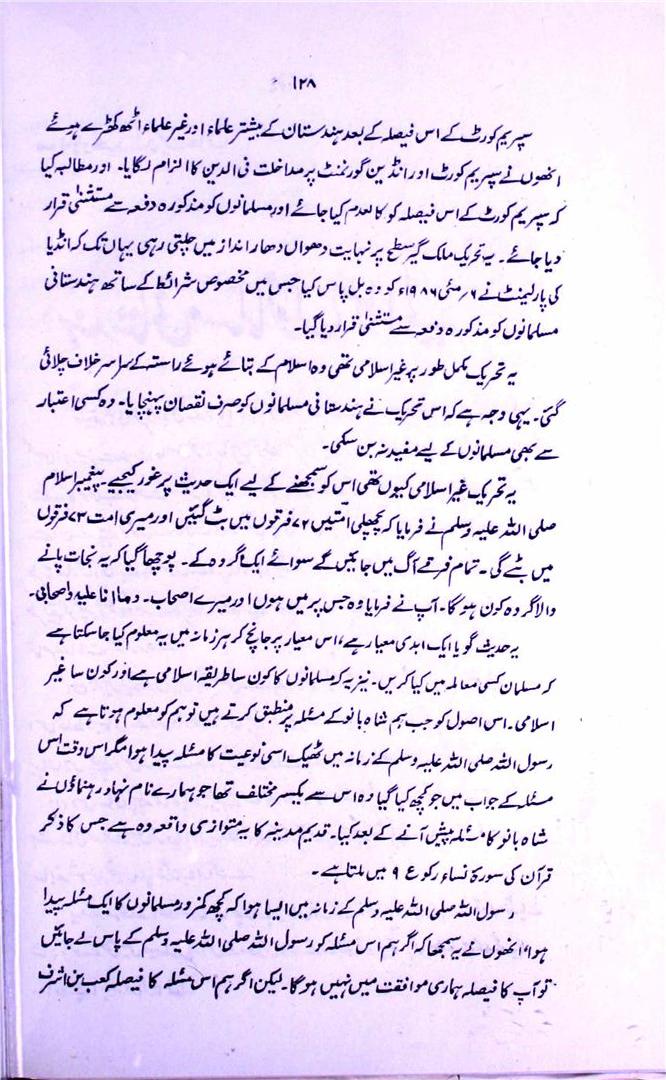 ۱۲۸
سپریم کورٹ کے اس فیصلہ کے بعد ہندستان کے بیشتر علماء اور غیر علماء اٹھ کھڑے ہوئے
انھوں نے سپریم کورٹ اور انڈین گورنمنٹ پر مداخلت فی الدین کا الزام لگایا۔ اور مطالبہ کیا
کہ سپریم کورٹ کے اس فیصلہ کو کالعدم کیا جائے اور مسلمانوں کو مذکورہ دفعہ سے مستثنیٰ قرار
دیا جائے۔ یہ تحریک ملک گیر سطح پر نہایت دھواں دھار انداز میں چلتی رہی یہاں تک کہ انڈیا
کی پارلیمنٹ نے ۶ مئی ۱۹۸۶ء کو وہ بل پاس کیا جس میں مخصوص شرائط کے ساتھ ہندستانی
مسلمانوں کو مذکورہ دفعہ سے مستثنیٰ قرار دیا گیا۔
یہ تحریک مکمل طور پر غیر اسلامی تھی وہ اسلام کے بتائے ہوئے راستہ کے سراسر خلاف چلائی
گئی۔ یہی وجہ ہے کہ اس تحریک نے ہندستانی مسلمانوں کو صرف نقصان پہنچایا۔ وہ کسی اعتبار
سے بھی مسلمانوں کے لیے مفید نہ بن سکی۔
یہ تحریک غیر اسلامی کیوں تھی اس کو سمجھنے کے لیے ایک حدیث پر غور کیجیے۔ پیغمبر اسلام
صلی اللہ علیہ وسلم نے فرمایا کہ پچھلی امتیں ۷۲ فرقوں میں بٹ گئیں اور میری امت ۷۳ فرقوں
میں بٹے گی۔ تمام فرقے آگ میں جائیں گے سوائے ایک گروہ کے۔ پوچھا گیا کہ یہ نجات پانے
والا گروہ کون ہوگا۔ آپ نے فرمایا وہ جس پر میں ہوں اور میرے اصحاب۔ (ما انا علیہ واصحابی۔
یہ حدیث گویا ایک ابدی معیار ہے، اس معیار پر جانچ کر ہر زمانہ میں یہ معلوم کیا جاسکتا ہے
کہ مسلمان کسی معاملہ میں کیا کریں۔ نیز یہ کہ مسلمانوں کا کون سا طریقہ اسلامی ہے اور کون سا غیر
اسلامی۔ اس اصول کو جب ہم شاہ بانو کے مسئلہ پر منطبق کرتے ہیں تو ہم کو معلوم ہوتا ہے کہ
رسول اللہ صلی اللہ علیہ وسلم کے زمانہ میں ٹھیک اسی نوعیت کا مسئلہ پیدا ہوا مگر اس وقت اس
مسئلہ کے جواب میں جو کچھ کیا گیا وہ اس سے یکسر مختلف تھا جو ہمارے نام نہاد رہنماؤں نے
شاہ بانو کا مسئلہ پیش آنے کے بعد کیا۔ قدیم مدینہ کا یہ متوازی واقعہ وہ ہے جس کا ذکر
قرآن کی سورۃ نساء رکوع ۹ میں ملتا ہے۔
رسول اللہ صلی اللہ علیہ وسلم کے زمانہ میں ایسا ہوا کہ کچھ کمزور مسلمانوں کا ایک مسئلہ پیدا
ہوا، انھوں نے یہ سمجھا کہ اگر ہم اس مسئلہ کو رسول اللہ صلی اللہ علیہ وسلم کے پاس لے جائیں
تو آپ کا فیصلہ ہماری موافقت میں نہیں ہوگا۔ لیکن اگر ہم اس مسئلہ کا فیصلہ کعب بن اشرف